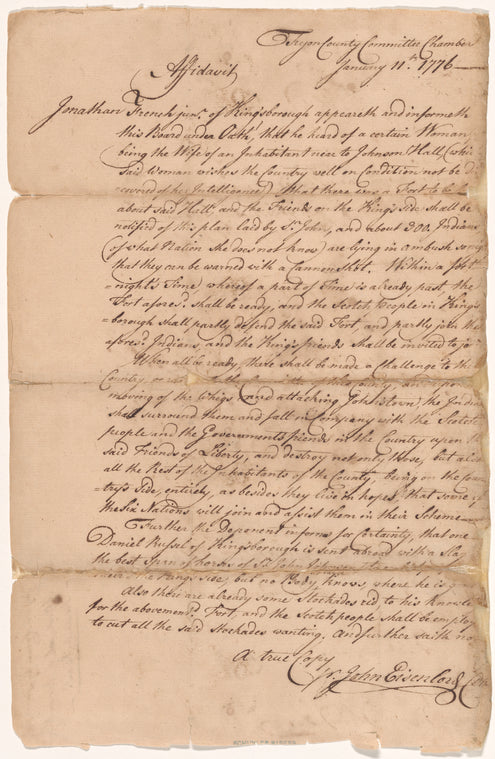 Tryon County Committee Chamber
January 11th 1776
Affidavit
Jonathan French junr. of Kingsborough appeareth and informeth
this Board under Oath, that he heard of a certain Woman
being the Wife of an Inhabitant near to Johnson Hall, (which
said Woman wishes the Country well on Condition not be
covered of her Intelligence) that there was a Fort to be
about said Hall, and the Friends on the King's side shall be
notified of this plan laid by Sr. John, and about 300. Indians
(of what Nation she does not know) are lying in ambush so nigh
that they can be warned with a Cannon Shot. Within a fort
=night's Time, whereof a part of Time is already past, the
Fort afores.d shall be ready, and the Scotch People in Kings
=borough shall partly defend the said Fort, and partly join the
afores.d Indians, and the King's friends shall be invited to join
When all be ready, there shall be made a Challenge to the
Country, or
moving of the Whigs (and attacking Johnstown) the Indians
shall surround them and fall in Company with the Scotch
people and the Governments friends in the Country upon the
said Friends of Liberty, and destroy not only those, but also
all the Rest of the Inhabitants of the County, being on the Coun
=try's side, entirely, as besides they live in hopes, that some of
the six Nations will join and assist them in their Scheme
Further the Deponent informs for Certainty, that one
Daniel Russel of Kingsborough is sent abroad with a Slay
the best Span of horses of Sr. John Johnson
the King's side, but no Body knows, where he is
Also there are already some Stockades rid to his Knowle
for the abovement.d Fort, and the Scotch people shall be employ
to cut all the said Stockades wanting. And further saith no
A true Copy
pr. John Eisenlord
SCHUYLER PAPERS